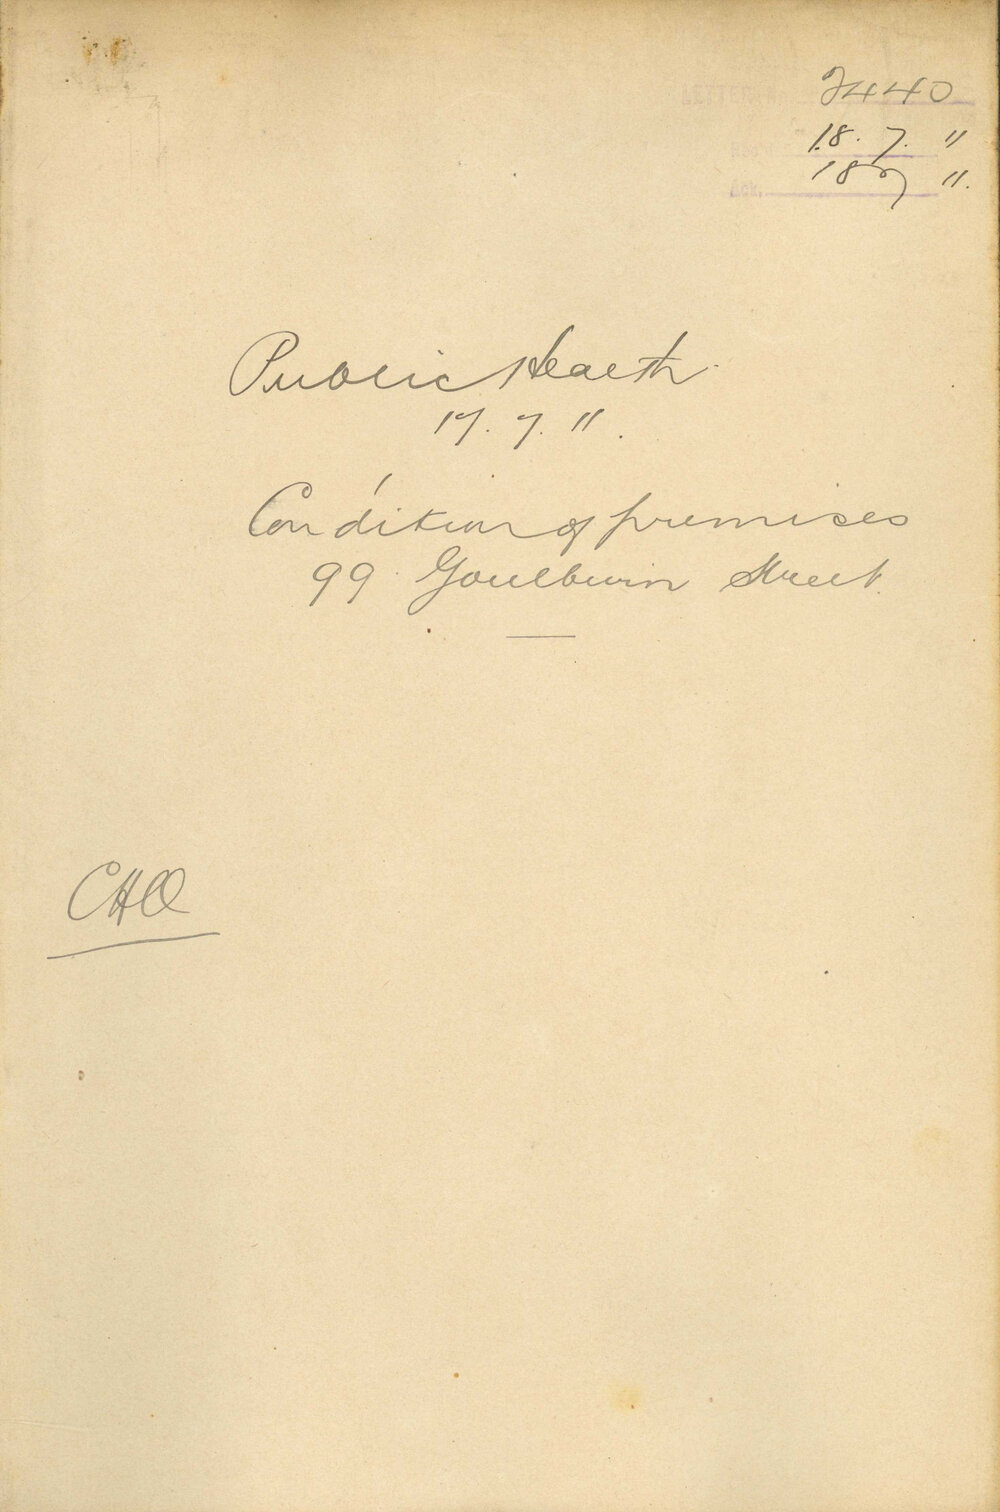 LETTER 2440
18. 7. 11
Ack. 18 7 11.
Public Health.
17. 7. 11.
Condition of premises
99 Goulburn Street.
CHO